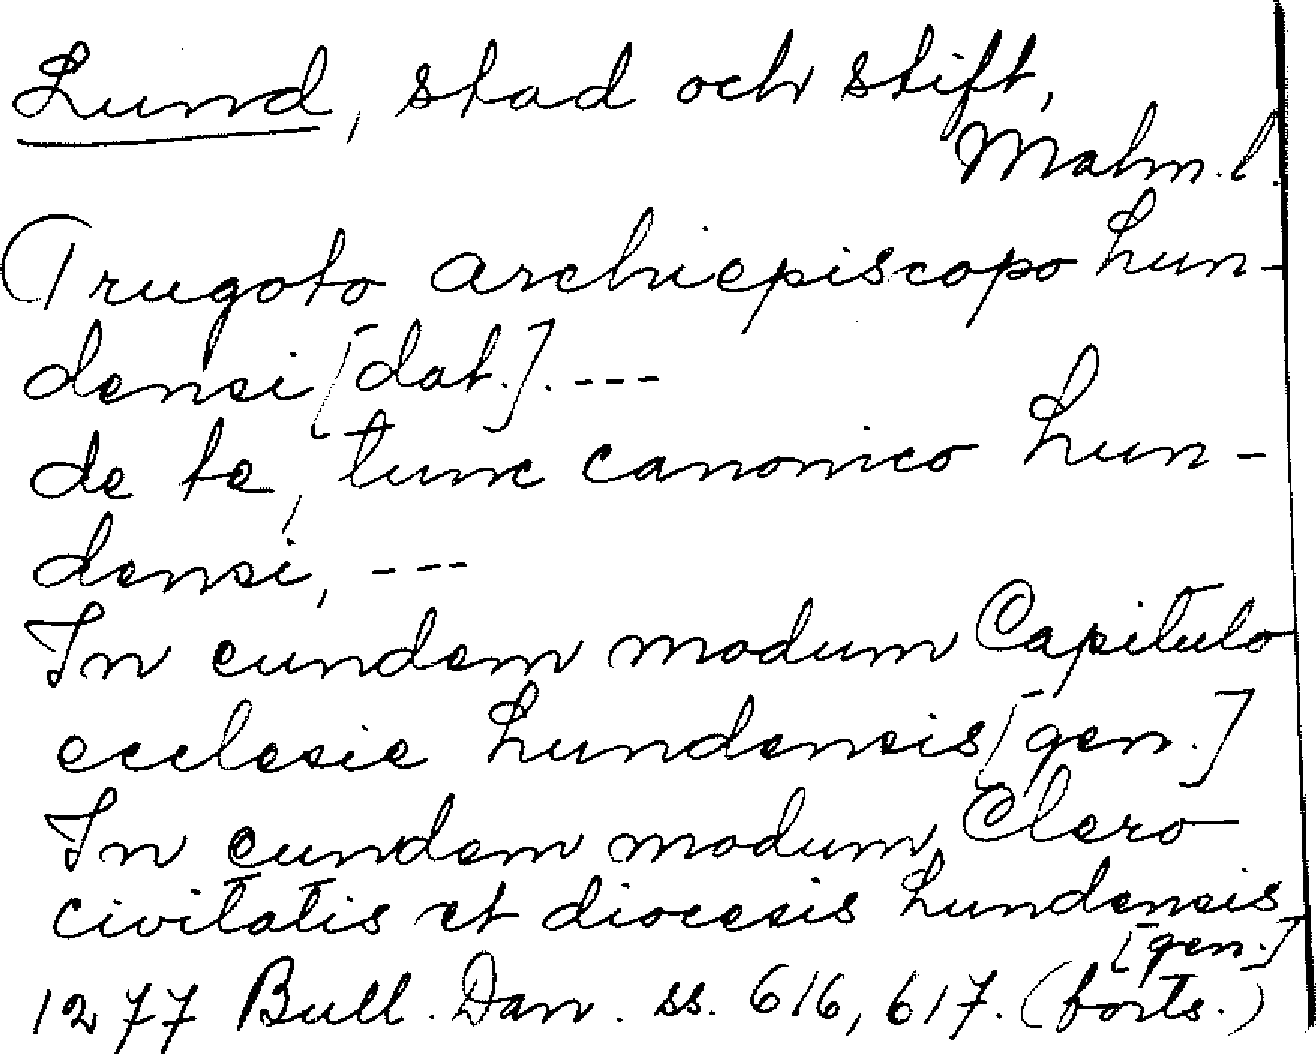 Lund, stad och stift,
Malm. l.
Trugoto archiepiscopo Lun-
densi [dat.]. ---
de te, tunc canonico Lun-
densi, ---
In eundem modum Capitulo
ecclesie Lundensis [gen.]
In eundem modum Clero
civitatis et diocesis Lundensis
[gen.]
1277 Bull. Dan. ss. 616, 617. (forts.)